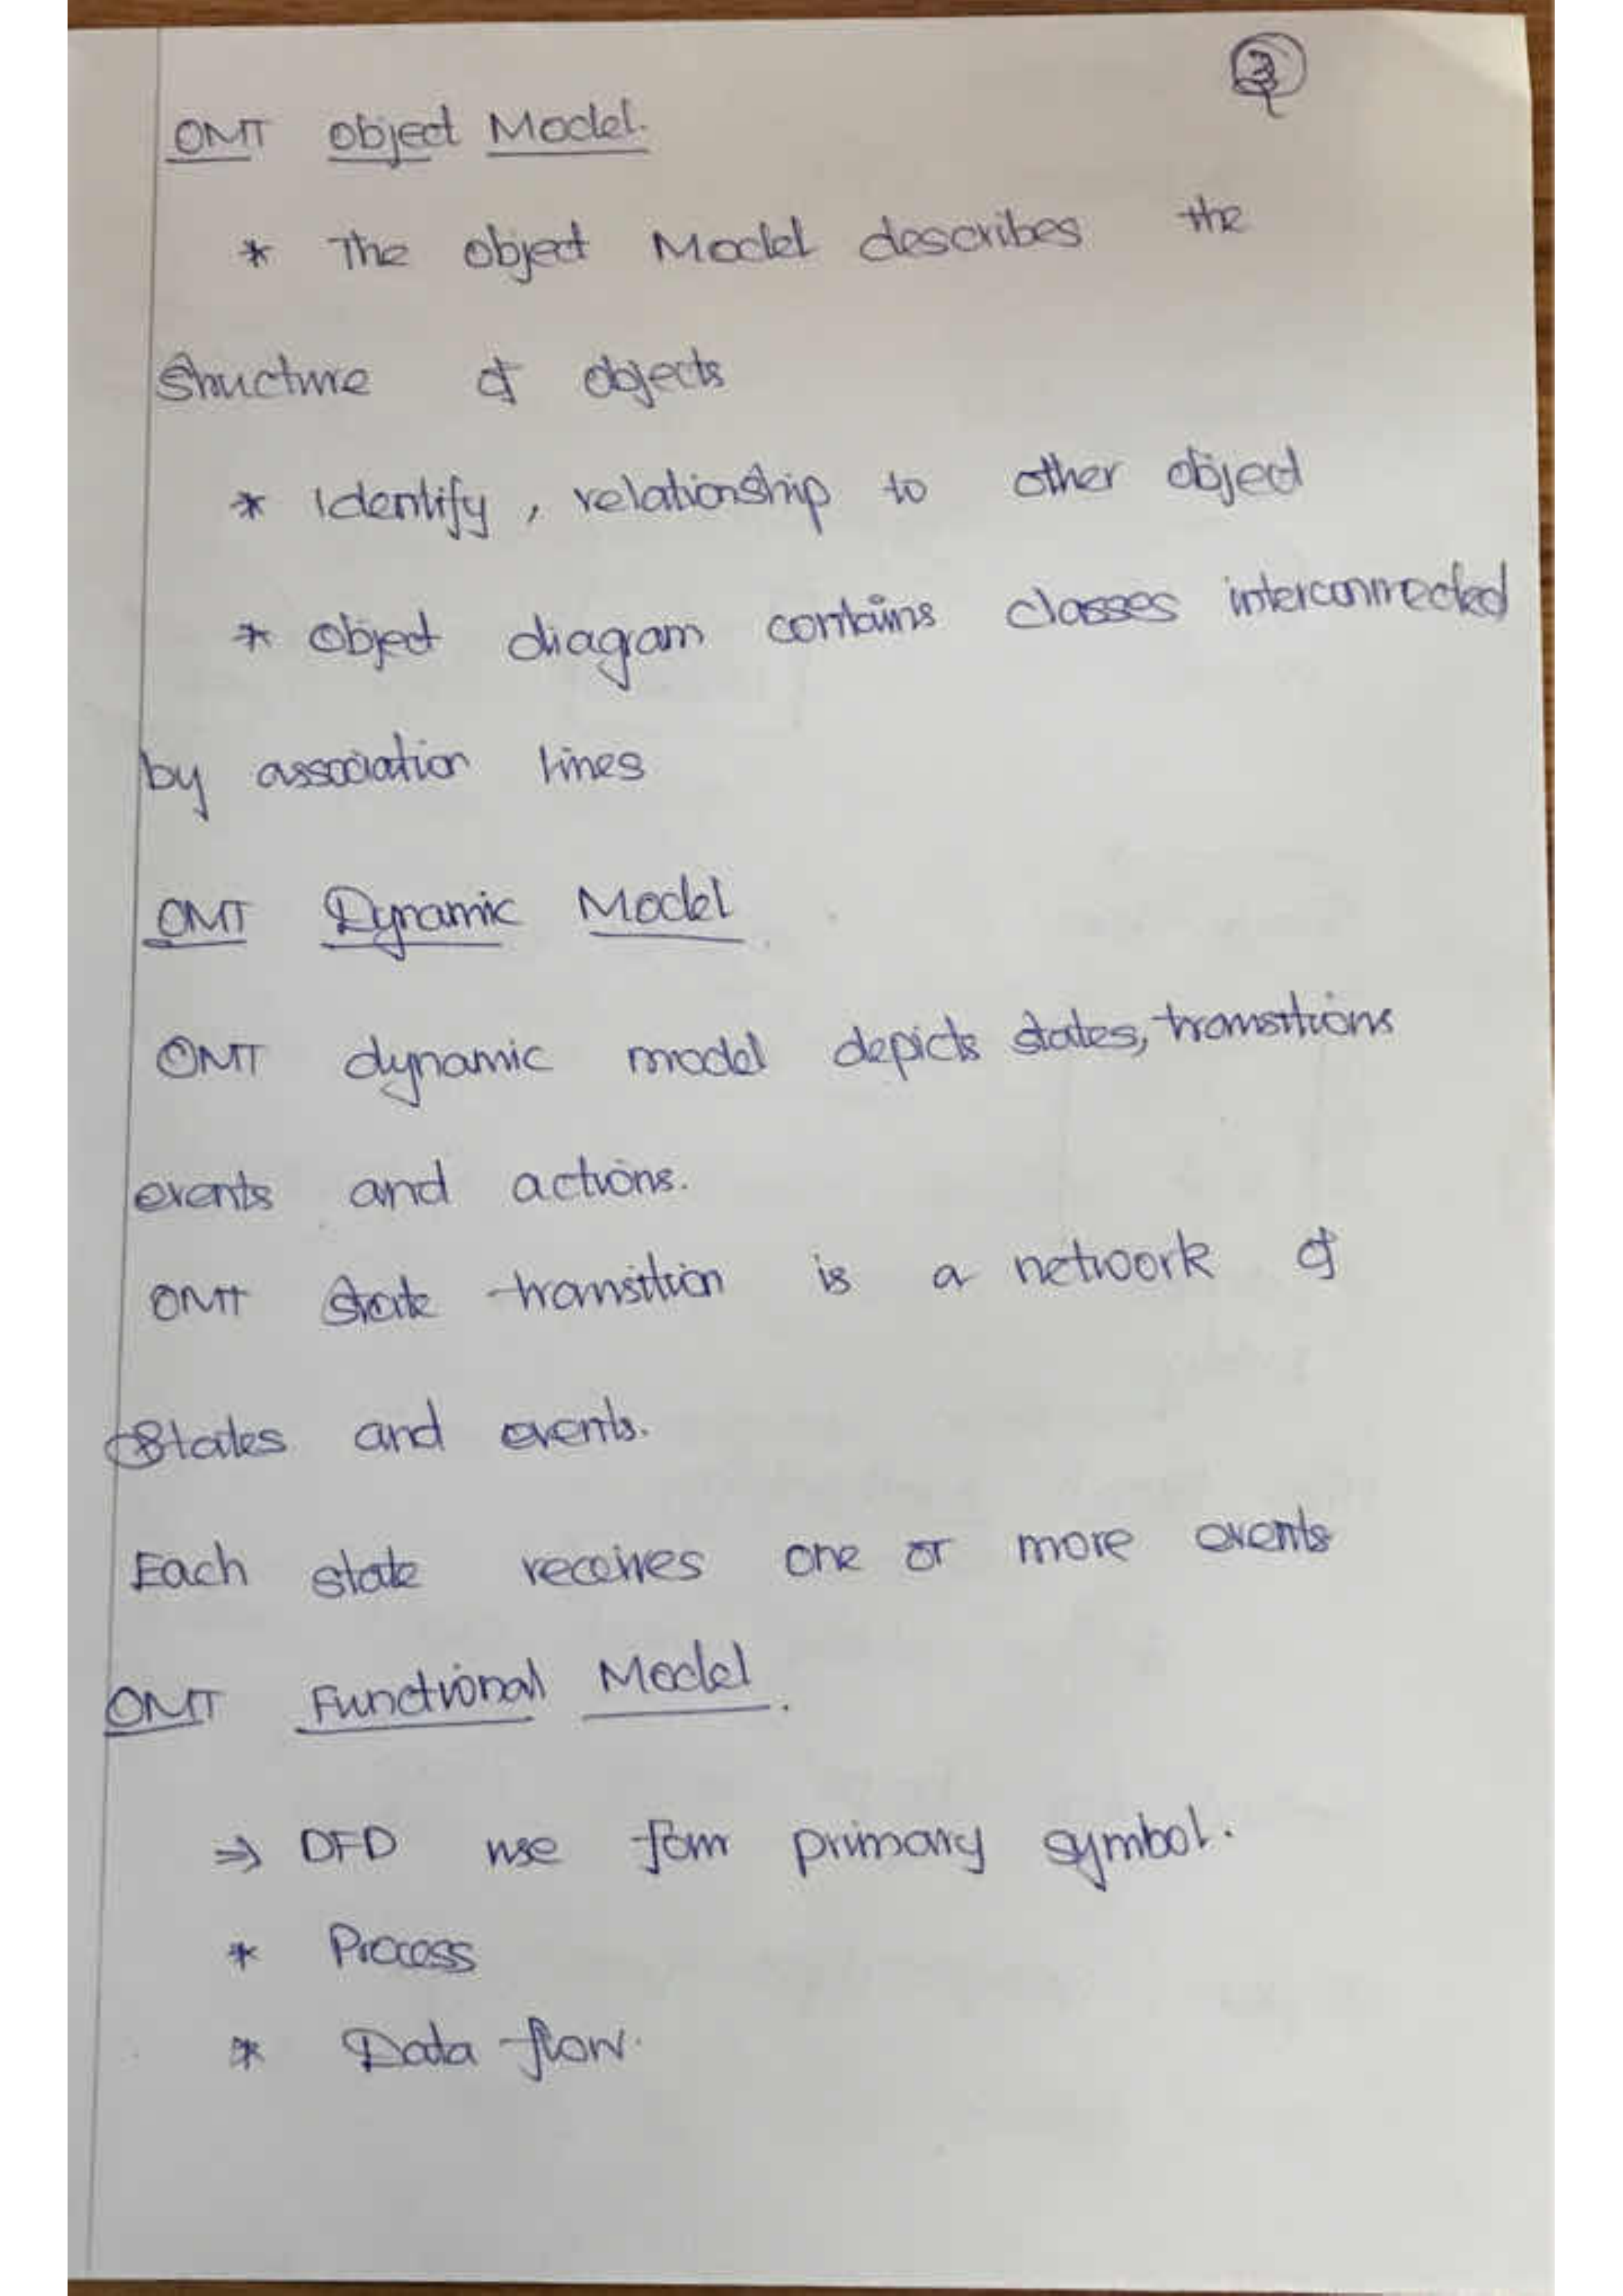 3
OMT object Model.
* The object Model describes the
Structure of objects
* Identify, relationship to other object
* Object diagam contains classes interconnected
by association lines
OMT Dynamic Model
OMT dynamic model depicts states, transitions
events and actions.
OMT State transition is a network of
States and events.
Each state receives one or more events
OMT Functional Model.
⇒ DFD use four primary symbol.
* Process
* Data flow.